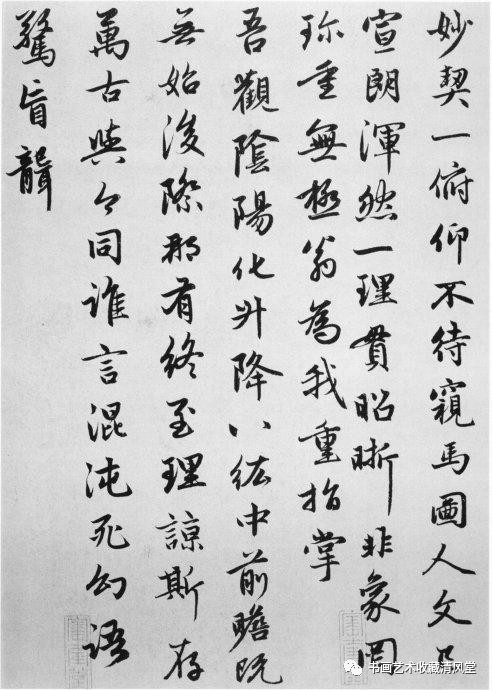 妙契一俯仰不待窺馬圖人文已
宣朗渾然一理貫昭晰非象罔
珍重無極翁為我重指掌
吾觀陰陽化升降八紘中前瞻既
無始後際那有終至理諒斯存
萬古與今同誰言混沌死幻語
驚盲聾
书画艺术收藏清风堂